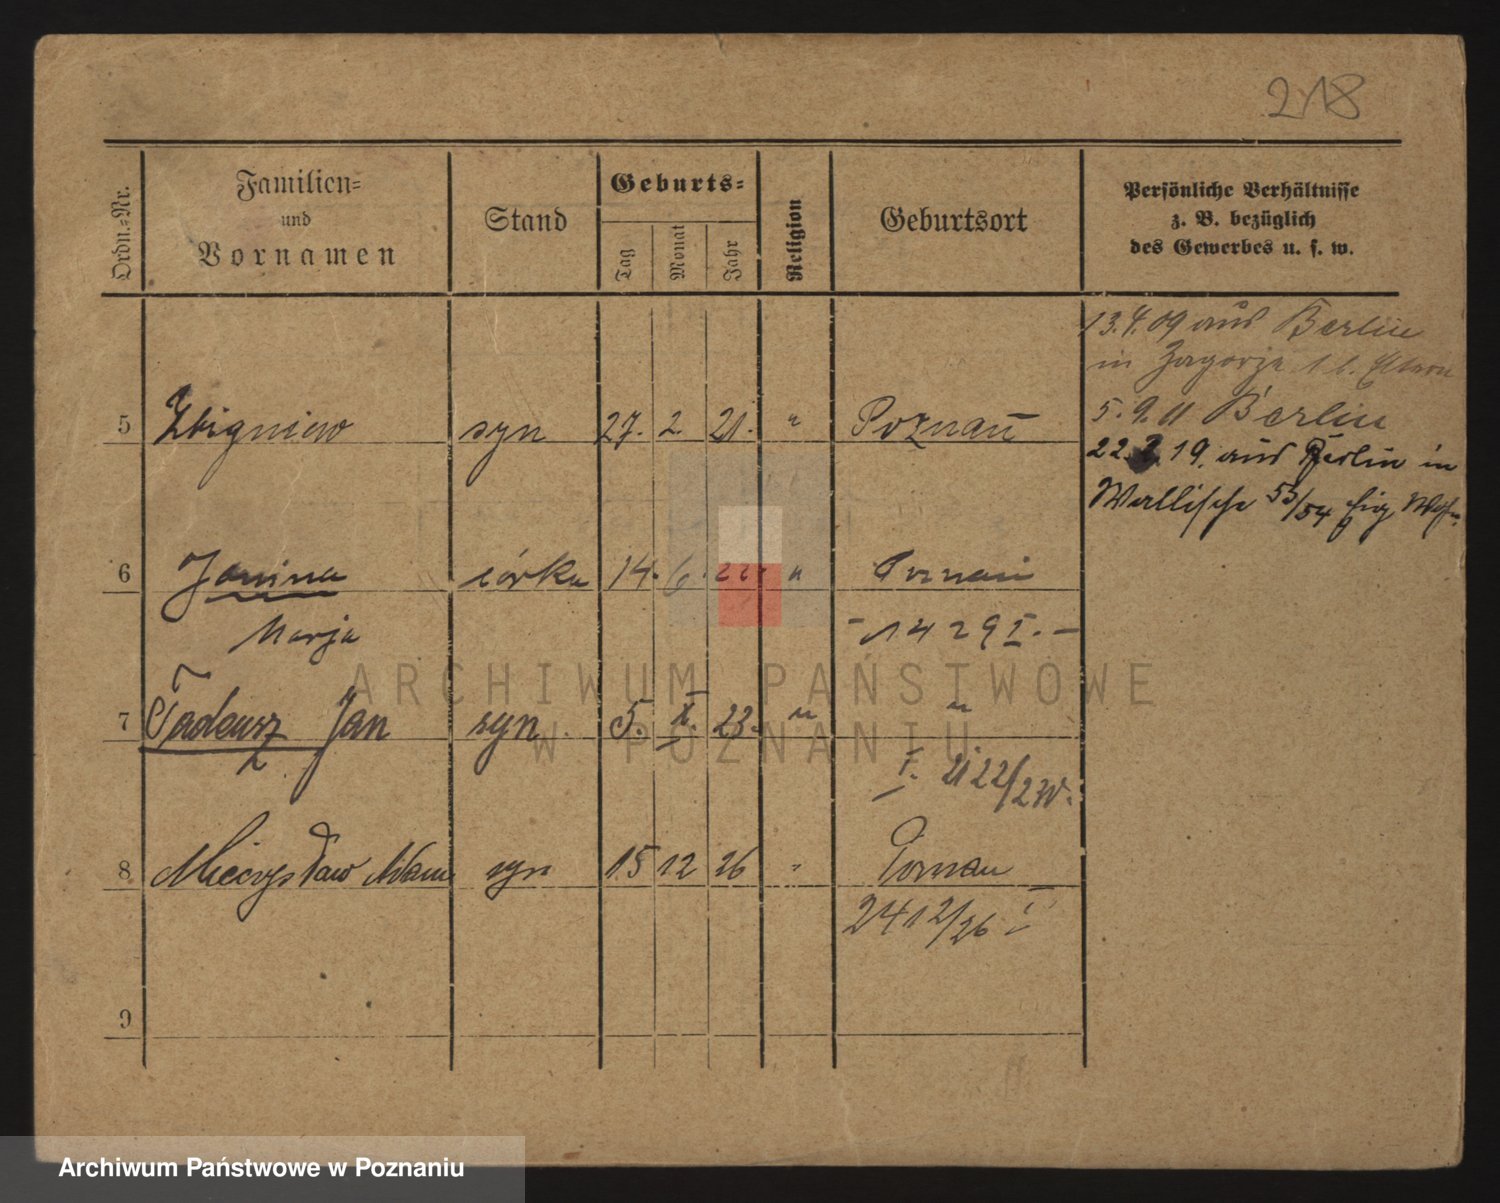 218
Ordn.=Nr.
Familien=
und
Vornamen
Stand
Geburts=
Tag
Monat
Jahr
Religion
Geburtsort
Persönliche Verhältnisse
z. B. bezüglich
des Gewerbes u. s. w.
13.4.09 aus Berlin
in Zagorze 1 b. Eltern
5.9.11 Berlin
22.2.19. aus Berlin in
Wallische 53/54 Eig. Wohn.
5 Zbigniew syn 27. 2 21. " Poznań
6 Janina córka 14. 6. 22. " Poznań
Marja - 14 29 I. -
7 Tadeusz Jan syn. 5. X. 23. " "
I. 22/23
8 Mieczysław Adam syn 15 12 26 " Poznań
24 12/26 I
9
ARCHIWUM PAŃSTWOWE
W POZNANIU
Archiwum Państwowe w Poznaniu